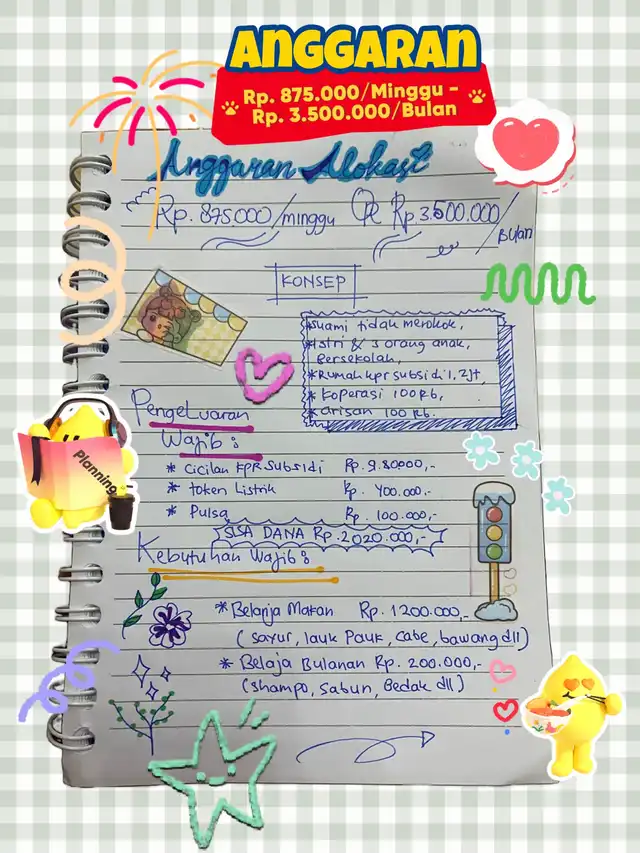 ANGGARAN
Rp. 875.000/Minggu -
Rp. 3.500.000/Bulan
Anggaran Alokasi
Rp. 875.000/minggu OR Rp 3.500.000/
Bulan
KONSEP
*Suami tidak merokok,
*Istri & 3 orang anak,
Bersekolah,
*Rumah kpr subsidi 1,2jt,
* Koperasi 100 Rb,
* arisan 100 Rb.
Pengeluaran
Wajib :
* Cicilan KPR Subsidi Rp. 980000,-
* token Listrik Rp. 400.000,-
* Pulsa Rp. 100.000,-
SISA DANA Rp. 2020.000,-
Kebutuhan Wajib :
* Belanja Makan Rp. 1200.000,-
( sayur, lauk Pauk, cabe, bawang dll)
* Belaja Bulanan Rp. 200.000,-
(shampo, sabun, Bedak dll)
Planning